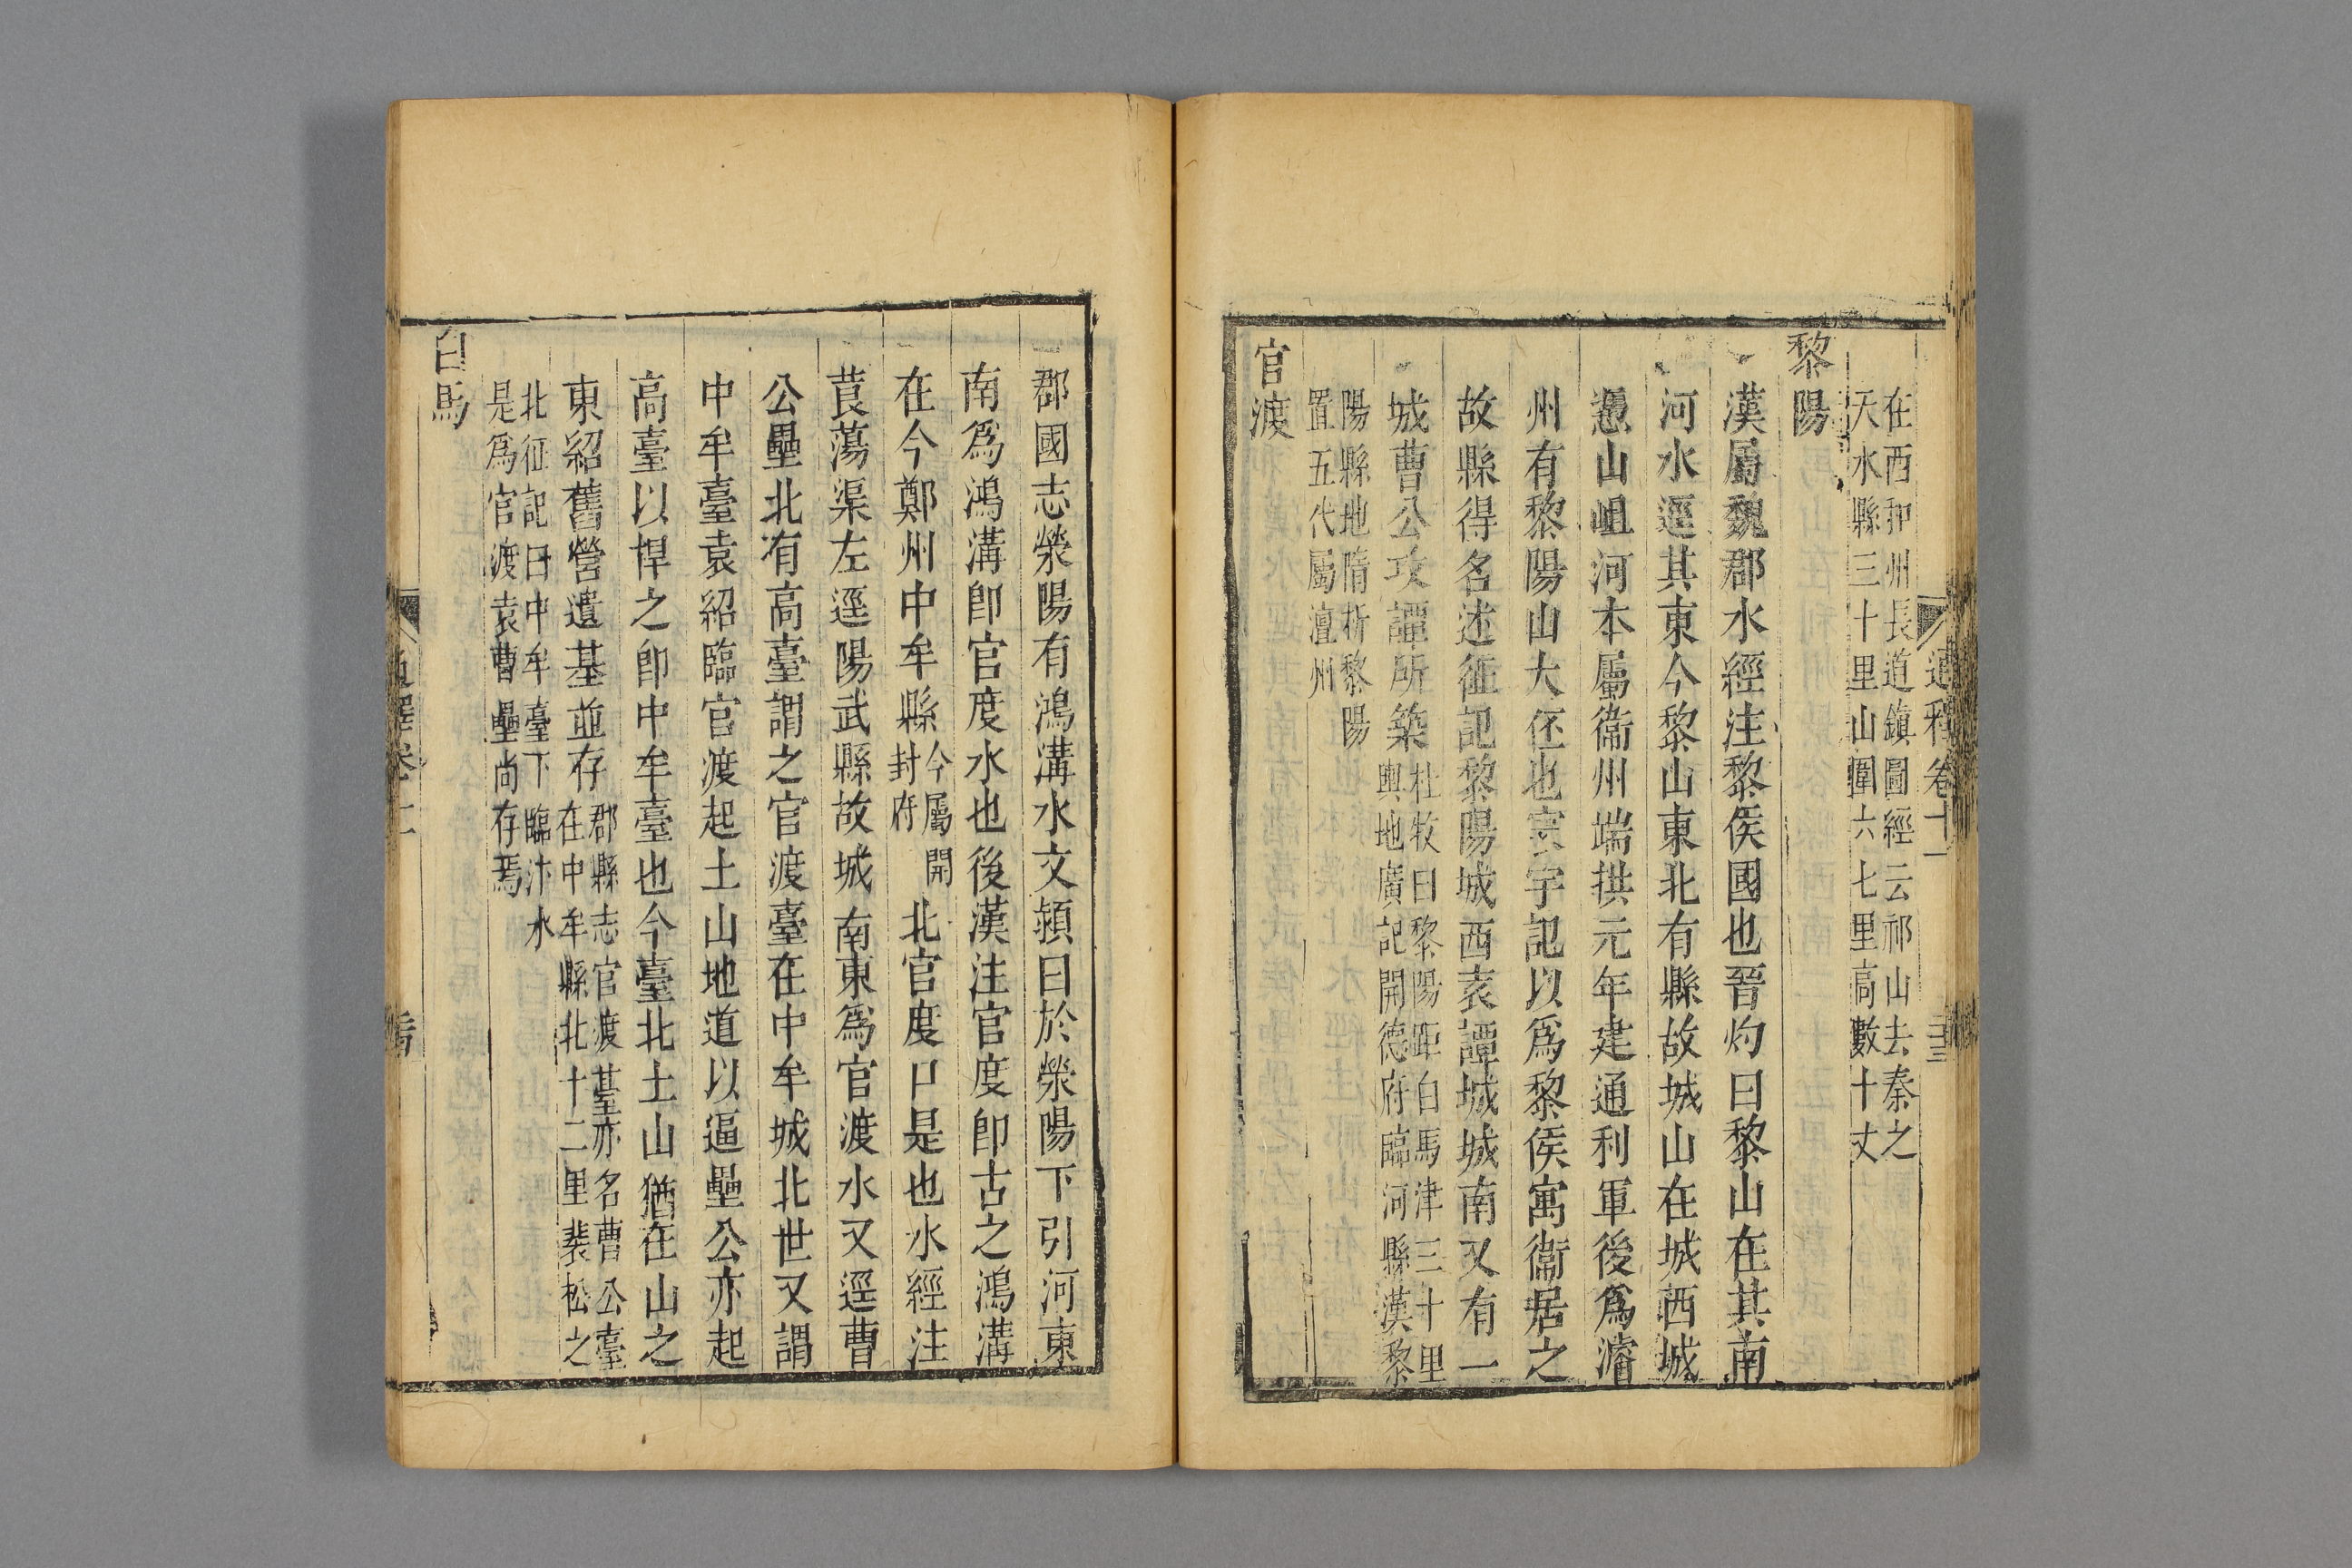 通釋卷十一
在西和州長道鎮圖經云祁山去秦之
天水縣三十里山圍六七里高數十丈
黎陽
漢屬魏郡水經注黎侯國也晉灼曰黎山在其南
河水逕其東今黎山東北有縣故城山在城西城
憑山岨河本屬衞州端拱元年建通利軍後爲濬
州有黎陽山大伾也寰宇記以爲黎侯寓衞居之
故縣得名述征記黎陽城西袁譚城城南又有一
城曹公攻譚所築杜牧曰黎陽距白馬津三十里
輿地廣記開德府臨河縣漢黎
陽縣地隋析黎陽
置五代屬澶州
官渡
郡國志滎陽有鴻溝水文頴曰於滎陽下引河東
南爲鴻溝卽官度水也後漢注官度卽古之鴻溝
在今鄭州中牟縣今屬開封府北官度口是也水經注
莨蕩渠左逕陽武縣故城南東爲官渡水又逕曹
公壘北有高臺謂之官渡臺在中牟城北世又謂
中牟臺袁紹臨官渡起土山地道以逼壘公亦起
高臺以悍之卽中牟臺也今臺北土山猶在山之
東紹舊營遺基並存郡縣志官渡臺亦名曹公臺
在中牟縣北十二里裴松之
北征記曰中牟臺下臨汴水
是爲官渡袁曹壘尚存焉
白馬